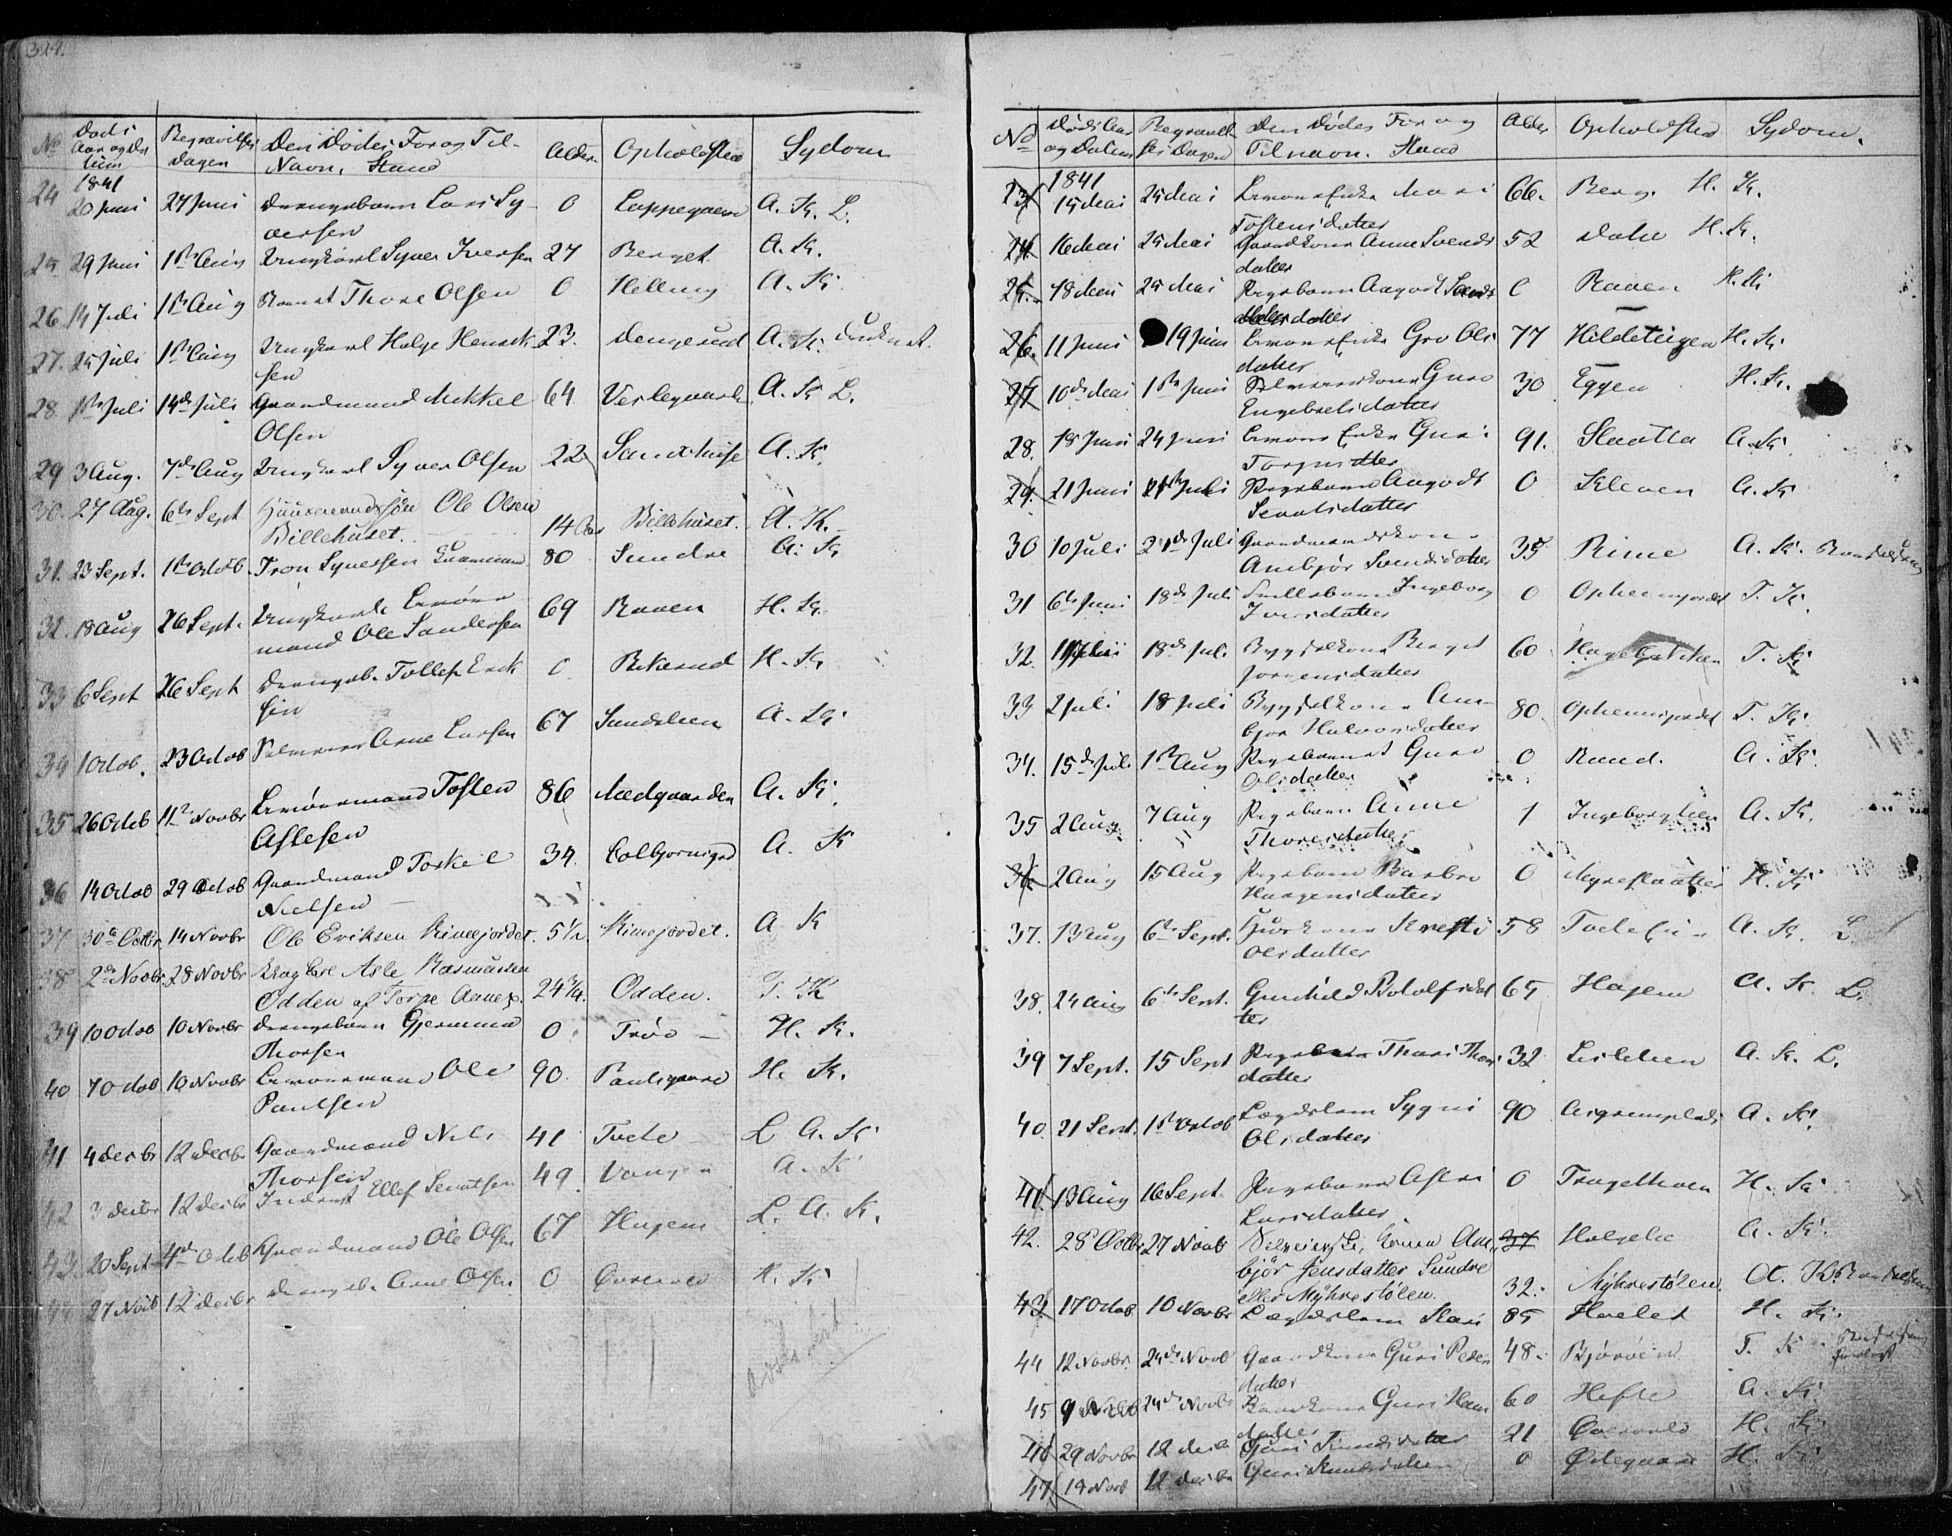 324.
No Döds Aar og Da tum Begravelses dagen Den Dödes For og Til-
Navn, Stand Alder Opholdsted Sydom
1841
24 20 Juni 27 Juni Drengebarn Lars Sy-
versen 0 Loppegaard A. K. L.
25 29 Juni 1ste Aug Ungkarl Syver Iversen 27 Berget A. K.
26. 14 Juli 1ste Aug Thore Olsen 0 Helling A. K.
27. 25 Juli 1ste Aug Ungkarl Helge Henrik
sen 23. Dengerud A. K. druknet.
28. 1ste Juli 14de Juli Gaardmand Mekkel
Olsen 64 Veslegaard A. K. L.
29 3 Aug. 7de Aug Ungkarl Syver Olsen 22 Sandhuse A. K.
30. 27 Aug. 6te Sept Huusmandssön Ole Olsen
Billehuset. 14 Aar Billehuset. A. K.
31. 23 Sept. 1ste Octob. Tron Syversen 80 Sundre A. K.
32. 18 Aug 26 Sept. Ungkarl Livöre
mand Ole Sandersen 69 Raaen H. K.
33 6 Sept 26 Sept Drengeb. Tollef Erik
sen 0 Rekerud H. K.
34 1 Octob. 23 Octob Arne Larsen 67 Sundslien A. K.
35 26 Octob 11te Novbr Livöremand Tosten
Aslesen 86 Medgaarden A. K.
36 14 Octob 29 Octob Gaardmand Torkel
Nielsen 34. Colbjornsgrd A. K
37 30te Octbr. 14 Novbr Ole Eriksen Rimejordet. 5 1/2 Rimejordet. A K
38 2de Novbr. 28 Novbr Ungkarl Asle Rasmussen
Odden af Torpe Annex. 24 3/4. Odden. T. K
39 10 Octob 10 Novbr Drengebarn Gjermund
Thorsen 0. Tröo H. K.
40 7 Octob 10 Novbr Livöremand Ole
Paulsen 90. Paulsgaard H. K.
41 4 Decbr 12 Decbr Gaardmand Nils
Thorsen 41 Tvete L A. K.
42 3 Decbr 12 Decbr Inderst Ellef Sevatsen 49. Vangen A. K
43 20 Sept 4de Octob Gaardmand Ole Olsen 67 Hagen L. A. K.
44 27 Novb 12 Decbr Drengeb. Arne Olsen 0 H. K.
No Döds Aar og Datum Begravel ses Dagen Den Dödes For og
Tilnavn. Stand Alder Opholdsted Sydom.
1841
23 15 Mai 25 Mai Livöre Enke Mari
Tostensdatter 66. Berg. H. K.
24. 16 Mai 25 Mai Gaardkone Anne Svends
datter 52 Dale H. K.
25. 18 Mai 25 Mai Pigebarn Aagodt
datter 0 Raaen H. K.
26. 11 Juni 19 Juni Livöre Enke Gro Ols
datter 77 Hildeteigen H. K.
27 10de Mai 1ste Juni Guro
Engebretsdatter 30 Eggen H. K.
28. 18 Juni 24 Juni Livöre Enke Guri
Torgersdatter 91. Slaatta A. K.
29. 21 Juni Juli Pigebarn Aagodt
Sevatsdatter 0 Kleven A. K
30 10 Juli Juli Gaardmandskone
Ambjör Svendsdatter 35 Rime A. K. Barselseng
31 6te Juni 18de Juli Pigebarn Ingeborg
Iversdatter 0 Opheimjordet T. K.
32. 18de Jul. Bygselkone Berget
Jorgensdatter 60 T. K.
33 2 Juli 18 Juli Bygselkone Am-
bjor Halvorsdatter 80. Opheimsjordet T. K.
34. 15de Juli 1ste Aug Pigebarnet Guro
Olsdatter 0 Rund. A. K.
35 2 Aug. 7 Aug Pigebarn Anne
Thoresdatter 1 Ingeborglien A. K.
36 2 Aug 15 Aug Pigebarn Barbro
Haagensdatter 0 Myreslaatten H. K
37. 13 Aug 6te Sept. Huuskone Kristi
Olsdatter 58 A. K. L
38. 24 Aug 6te Sept. Gunhild Botolfsdat
ter 65 Hagen A. K. L.
39 7 Sept. 15 Sept Pigebarn Thori Thors
datter 32 Lislelien A. K. L.
40. 21 Sept. 1ste Octob Lægdslem Sygni
Olsdatter 90 A. K.
41. 13 Aug 16 Sept. Pigebarn Astri
Larsdatter. 0 Tragethoen H. K.
42. 28 Octbr. 27 Novb Selveierske, Konen Am,,
björ Jensdatter Sundre
eller Myhrestölen. 37 Helgelie A. K.
32. Myhrestölen A. K. Barselseng
43. 17 Octob 10 Novbr Lægdslem Kari 85 Hovlet H. K.
44 12 Novbr. 24de Novb Gaardkone Guri Peders
datter 48. Björöen T. K
45 9 Novb 24de Novbr Kaarkone Guri Hans
datter 60 Hefte A. K.
46 29 Novbr 12 Decb Guri Knudsdatter 21 H. K.
47 18 Novb 12 Decbr Guri Knudsdatter 0 Ödegaard H. K.